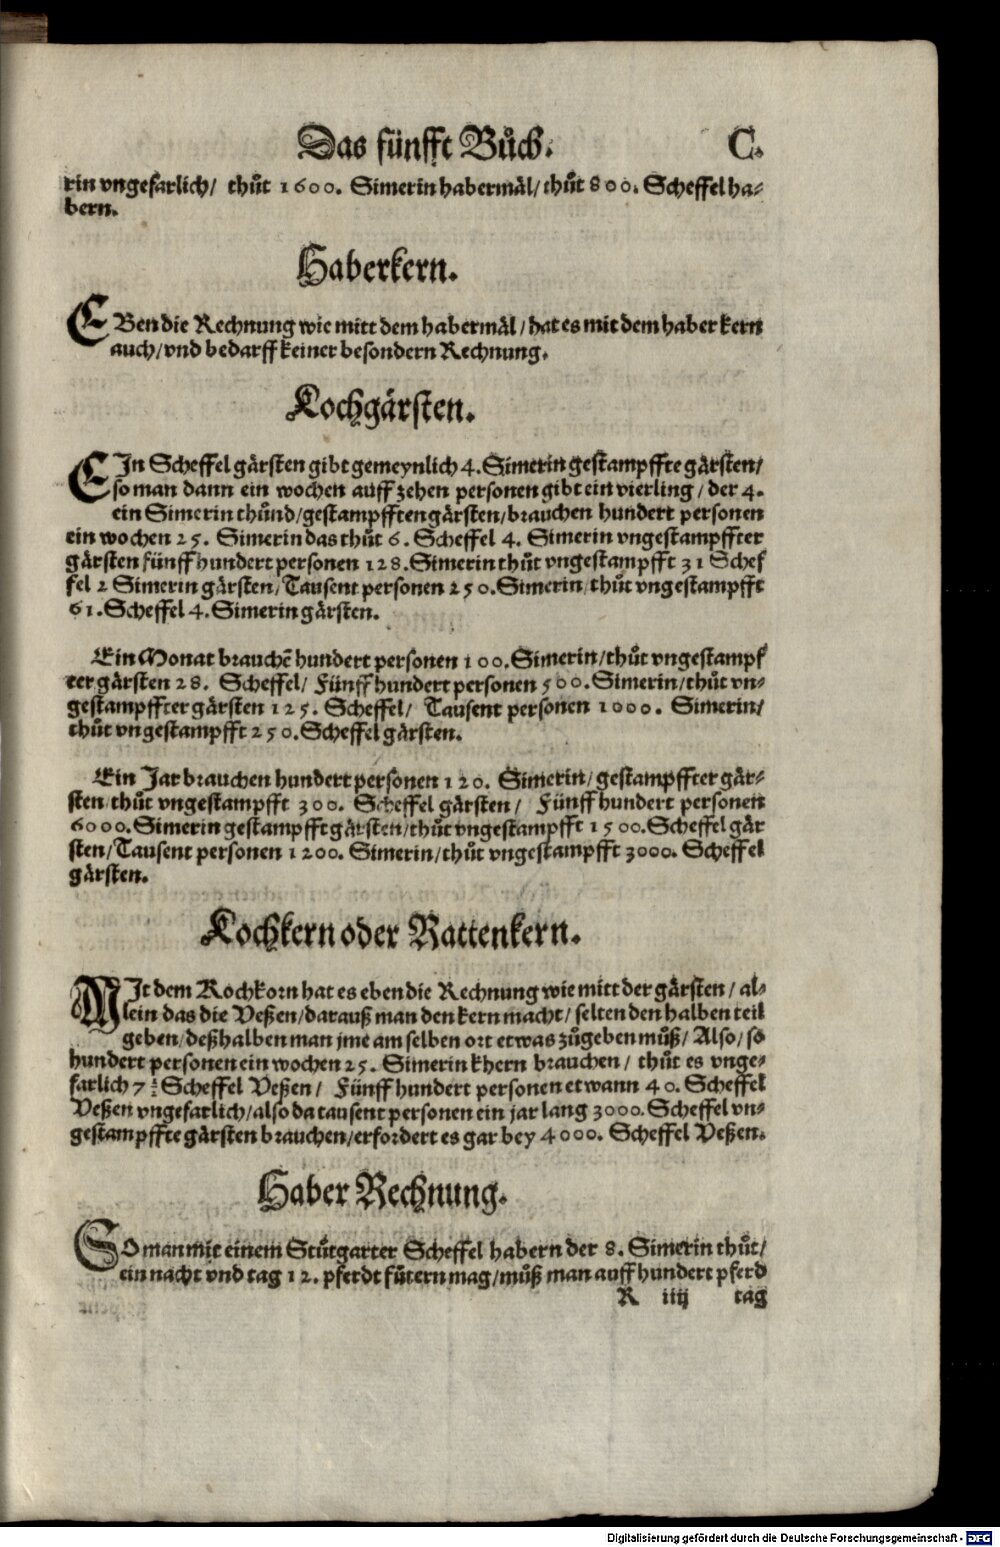 Das fünfft Bůch. C.
rin vngefarlich/ thůt 1600. Simerin habermäl/ thůt 800. Scheffel ha-
bern.
Haberkern.
EBen die Rechnung wie mitt dem habermäl/ hat es mit dem haber kern
auch/ vnd bedarff keiner besondern Rechnung.
Kochgärsten.
EIn Scheffel gärsten gibt gemeynlich 4. Simerin gestampffte gärsten/
so man dann ein wochen auff zehen personen gibt ein vierling/ der 4.
ein Simerin thůnd/ gestampfften gärsten/ brauchen hundert personen
ein wochen 25. Simerin das thůt 6. Scheffel 4. Simerin vngestampffter
gärsten fünff hundert personen 128. Simerin thůt vngestampfft 31 Schef
fel 2 Simerin gärsten/ Tausent personen 250. Simerin/ thůt vngestampfft
61. Scheffel 4. Simerin gärsten.
Ein Monat brauchẽ hundert personen 100. Simerin/ thůt vngestampf
ter gärsten 28. Scheffel/ Fünff hundert personen 500. Simerin/ thůt vn-
gestampffter gärsten 125. Scheffel/ Tausent personen 1000. Simerin/
thůt vngestampfft 250. Scheffel gärsten.
Ein Jar brauchen hundert personen 120. Simerin/ gestampffter gär-
sten/ thůt vngestampfft 300. Scheffel gärsten/ Fünff hundert personen
6000. Simerin gestampfft gärsten/ thůt vngestampfft 1500. Scheffel gär
sten/ Tausent personen 1200. Simerin/ thůt vngestampfft 3000. Scheffel
gärsten.
Kochkern oder Rattenkern.
MIt dem Kochkorn hat es eben die Rechnung wie mitt der gärsten/ al-
lein das die Veßen/ darauß man den kern macht/ selten den halben teil
geben/ deßhalben man jme am selben ort etwas zůgeben můß/ Also/ so
hundert personen ein wochen 25. Simerin khern brauchen/ thůt es vnge-
farlich 7½ Scheffel Veßen/ Fünff hundert personen etwann 40. Scheffel
Veßen vngefarlich/ also da tausent personen ein jar lang 3000. Scheffel vn-
gestampffte gärsten brauchen/ erfordert es gar bey 4000. Scheffel Veßen.
Haber Rechnung.
SO man mit einem Stůtgarter Scheffel habern der 8. Simerin thůt/
ein nacht vnd tag 12. pferdt fůtern mag/ můß man auff hundert pferd
R iiij tag
Digitalisierung gefördert durch die Deutsche Forschungsgemeinschaft - DFG